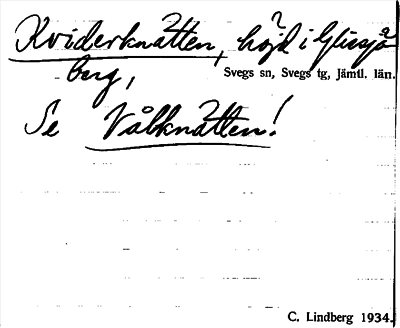 Kviderknatten, höjd i Glissjö
berg,
Svegs sn, Svegs tg, Jämtl. län.
Se Vålknatten!
C. Lindberg 1934.